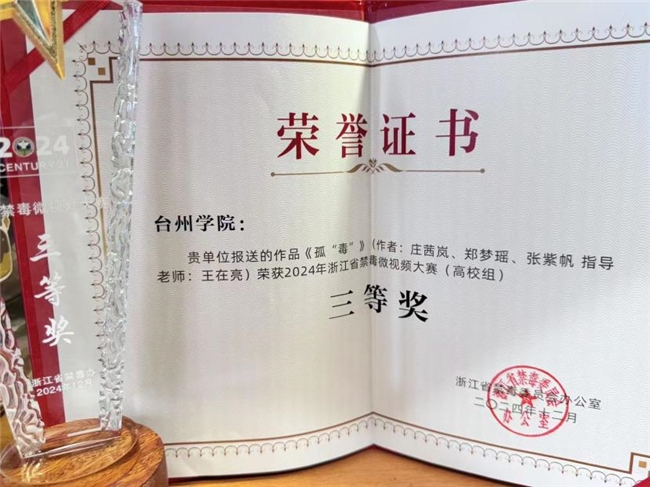 荣誉证书
台州学院：
贵单位报送的作品《孤“毒”》（作者：庄茜岚、郑梦瑶、张紫帆 指导
老师：王在亮）荣获2024年浙江省禁毒微视频大赛（高校组）
三等奖
浙江省禁毒委员会办公室
二〇二四年十二月
办公室
2024
CENTURY
禁毒微
三等奖
浙江省禁毒办
2024年12月